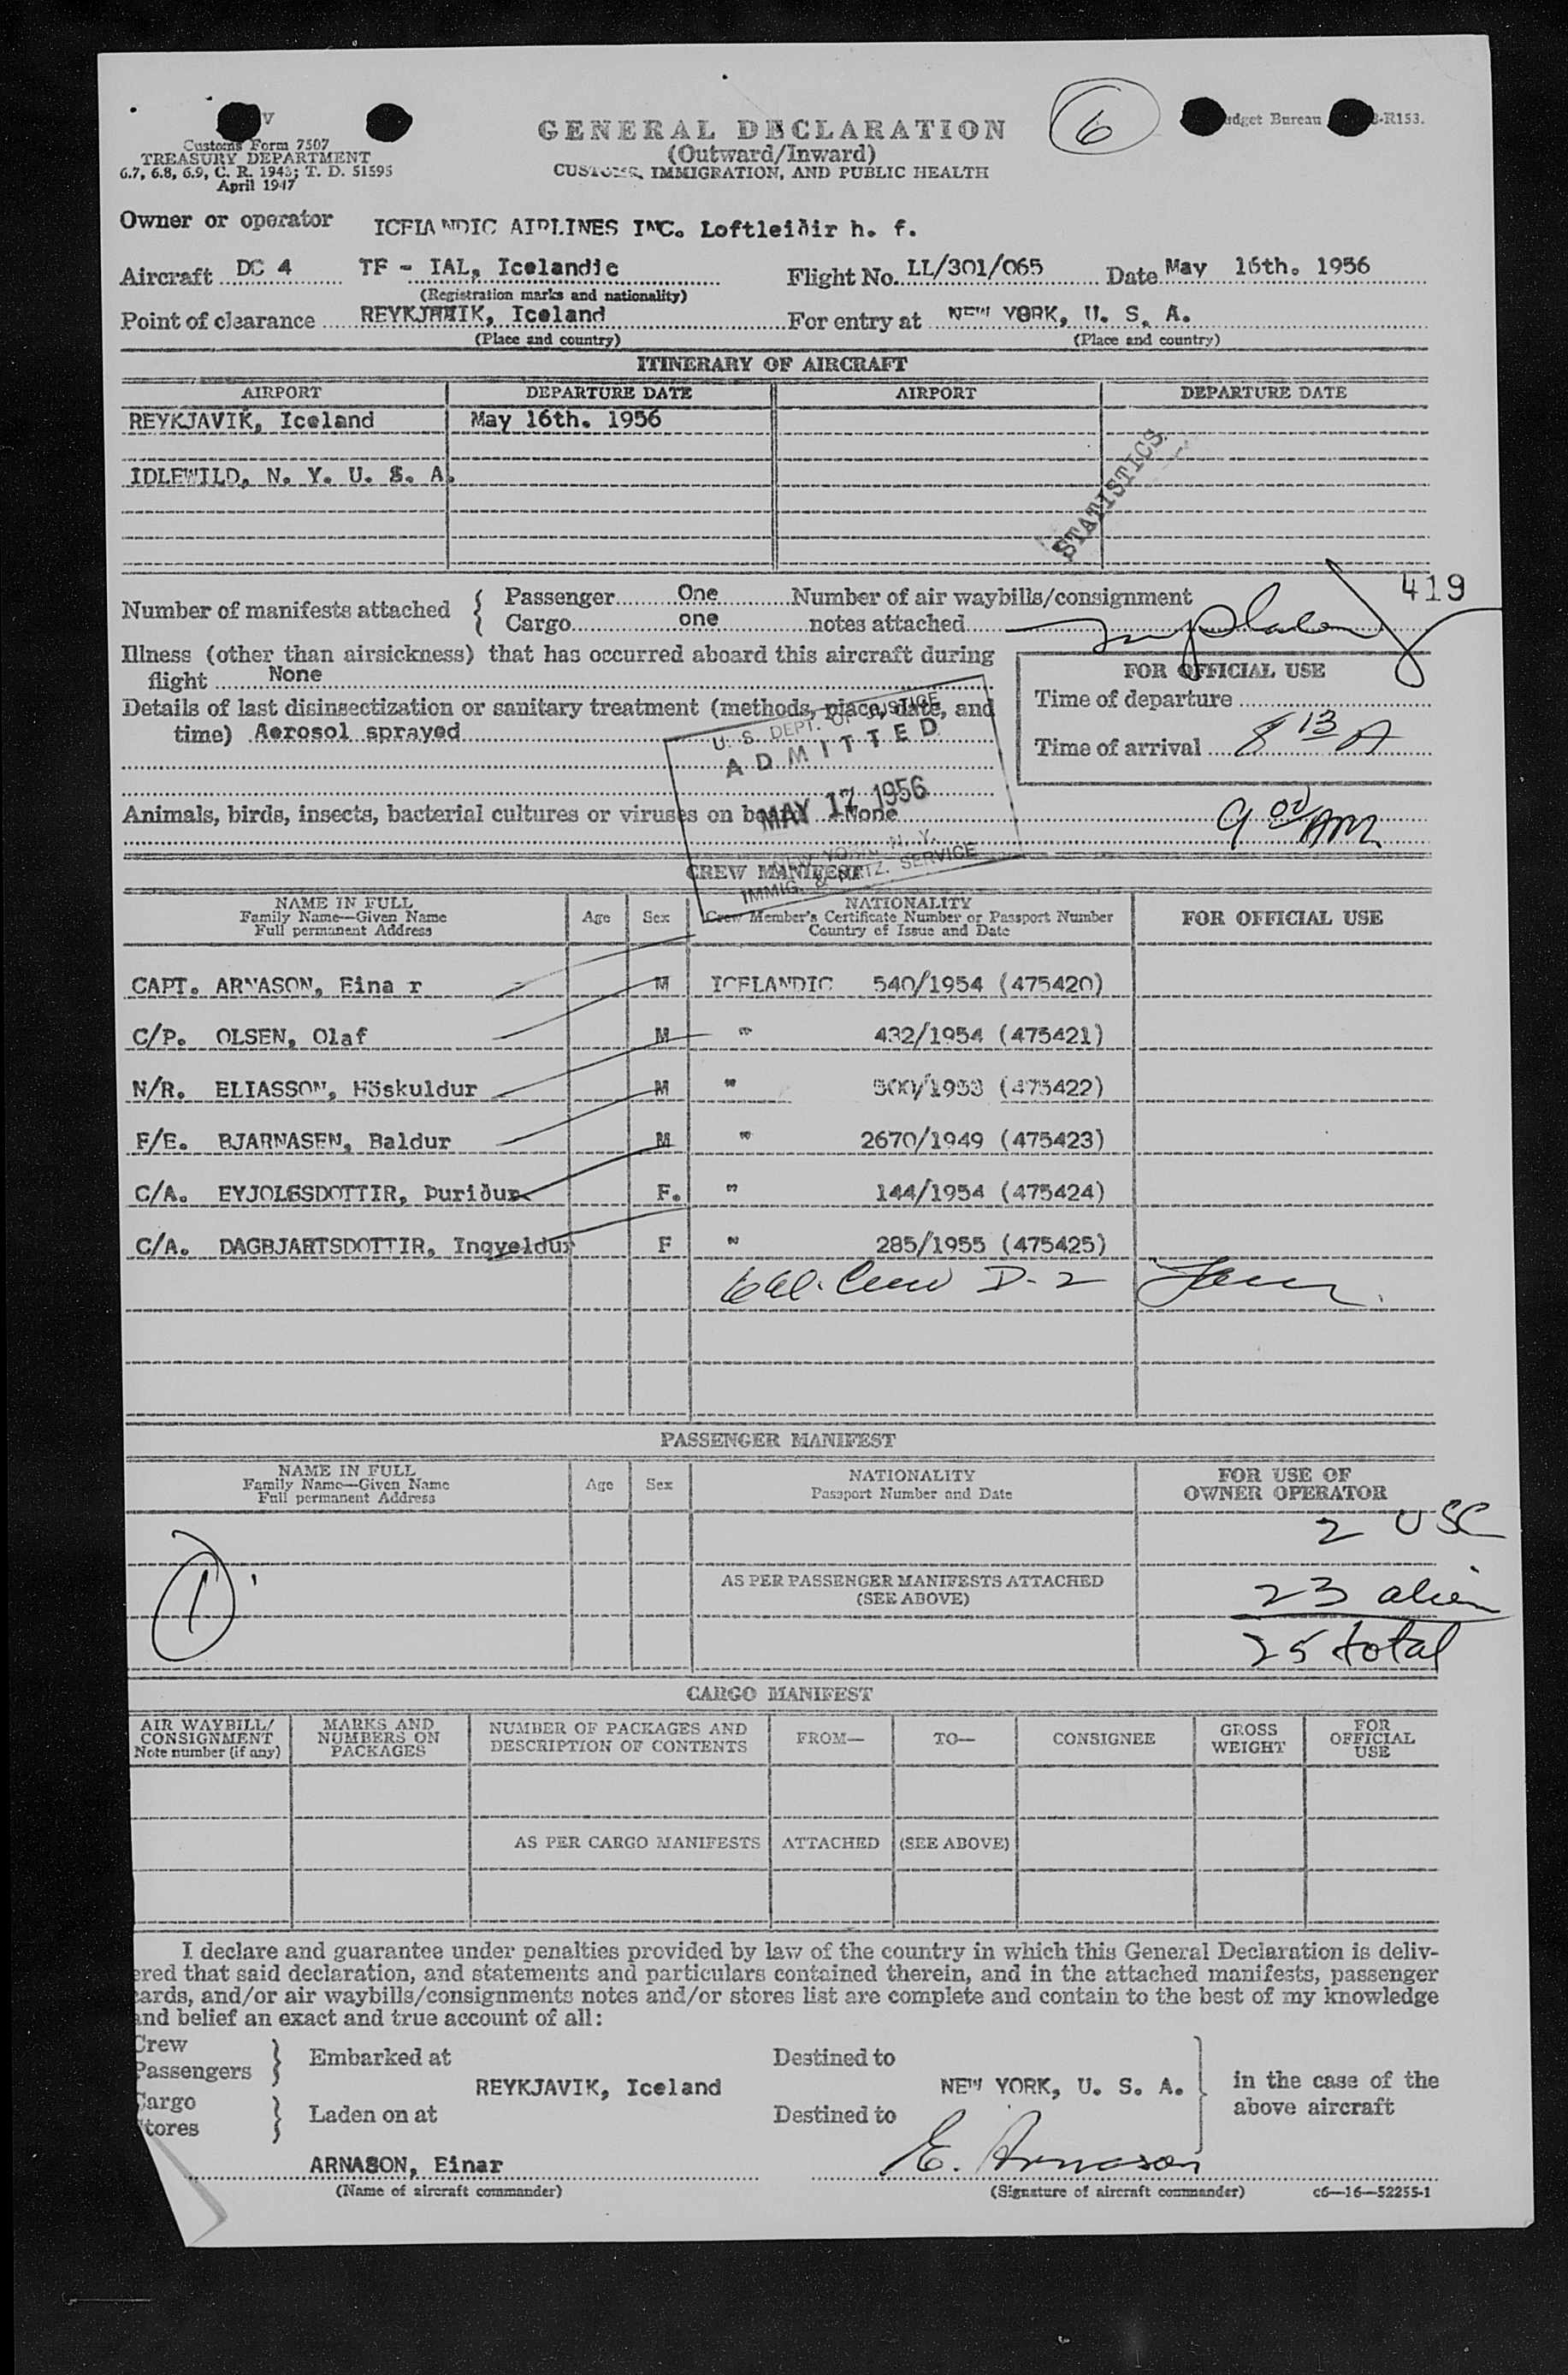 6
V
Customs Form 7507
TREASURY DEPARTMENT
6.7, 6.8, 6.9, C. R. 1943; T. D. 51595
April 1947
GENERAL DECLARATION
(Outward/Inward)
CUSTOMS, IMMIGRATION, AND PUBLIC HEALTH
Budget Bureau R153.
Owner or operator ICELANDIC AIRLINES INC. Loftleiðir h. f.
Aircraft DC 4 TF - IAL, Icelandic Flight No. LL/301/065 Date May 16th. 1956
(Registration marks and nationality)
Point of clearance REYKJAVIK, Iceland For entry at NEW YORK, U. S. A.
(Place and country) (Place and country)
ITINERARY OF AIRCRAFT
AIRPORT DEPARTURE DATE AIRPORT DEPARTURE DATE
REYKJAVIK, Iceland May 16th. 1956
IDLEWILD, N. Y. U. S. A.
STATISTICS
419
Number of manifests attached { Passenger One Number of air waybills/consignment
Cargo one notes attached
Illness (other than airsickness) that has occurred aboard this aircraft during
flight None
Details of last disinsectization or sanitary treatment (methods, place, date, and
time) Aerosol sprayed
FOR OFFICIAL USE
Time of departure
Time of arrival 8 13 A
U. S. DEPT. OF JUSTICE
ADMITTED
MAY 17 1956
NEW YORK, N. Y.
IMMIG. & NATZ. SERVICE
Animals, birds, insects, bacterial cultures or viruses on board None
9 00 AM
CREW MANIFEST
NAME IN FULL
Family Name—Given Name
Full permanent Address
Age Sex
NATIONALITY
Crew Member's Certificate Number or Passport Number
Country of Issue and Date
FOR OFFICIAL USE
CAPT. ARNASON, Eina r M ICELANDIC 540/1954 (475420)
C/P. OLSEN, Olaf M " 432/1954 (475421)
N/R. ELIASSON, Höskuldur M " 500/1953 (475422)
F/E. BJARNASEN, Baldur M " 2670/1949 (475423)
C/A. EYJOLGSDOTTIR, Þuriður F. " 144/1954 (475424)
C/A. DAGBJARTSDOTTIR, Ingveldur F " 285/1955 (475425)
D-2
PASSENGER MANIFEST
NAME IN FULL
Family Name—Given Name
Full permanent Address
Age Sex
NATIONALITY
Passport Number and Date
FOR USE OF
OWNER OPERATOR
2 USC
1
AS PER PASSENGER MANIFESTS ATTACHED
(SEE ABOVE)
23 alien
25 total
CARGO MANIFEST
AIR WAYBILL/
CONSIGNMENT
Note number (if any)
MARKS AND
NUMBERS ON
PACKAGES
NUMBER OF PACKAGES AND
DESCRIPTION OF CONTENTS
FROM— TO— CONSIGNEE
GROSS
WEIGHT
FOR
OFFICIAL
USE
AS PER CARGO MANIFESTS ATTACHED (SEE ABOVE)
I declare and guarantee under penalties provided by law of the country in which this General Declaration is deliv-
ered that said declaration, and statements and particulars contained therein, and in the attached manifests, passenger
cards, and/or air waybills/consignments notes and/or stores list are complete and contain to the best of my knowledge
and belief an exact and true account of all:
Crew
Passengers } Embarked at Destined to
REYKJAVIK, Iceland NEW YORK, U. S. A. } in the case of the
above aircraft
Cargo
Stores } Laden on at Destined to
ARNASON, Einar E. Arnason
(Name of aircraft commander) (Signature of aircraft commander) c6—16—52255-1